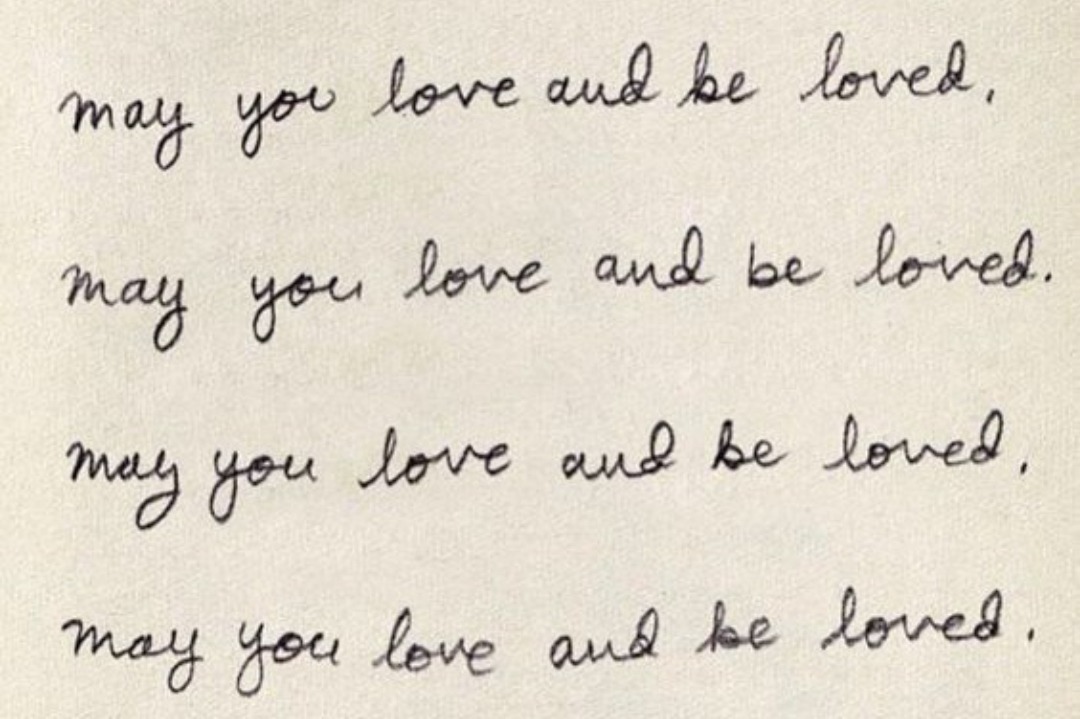 may you love and be loved,
may you love and be loved.
may you love and be loved,
may you love and be loved.